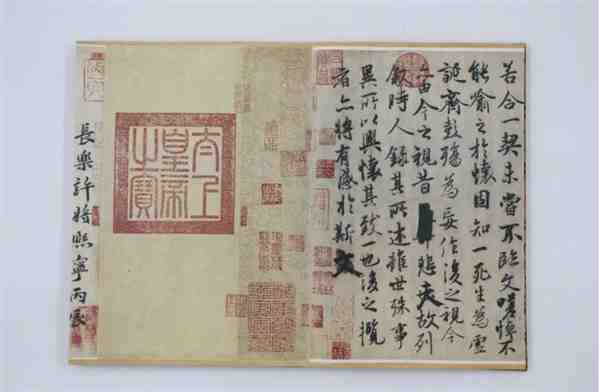 若合一契未嘗不臨文嗟悼不
能喻之於懷固知一死生為虛
誕齊彭殤為妄作後之視今
亦由今之視昔悲夫故列
敘時人錄其所述雖世殊事
異所以興懷其致一也後之攬
者亦將有感於斯文
太上
皇帝
之寶
長樂許將熙寧丙辰